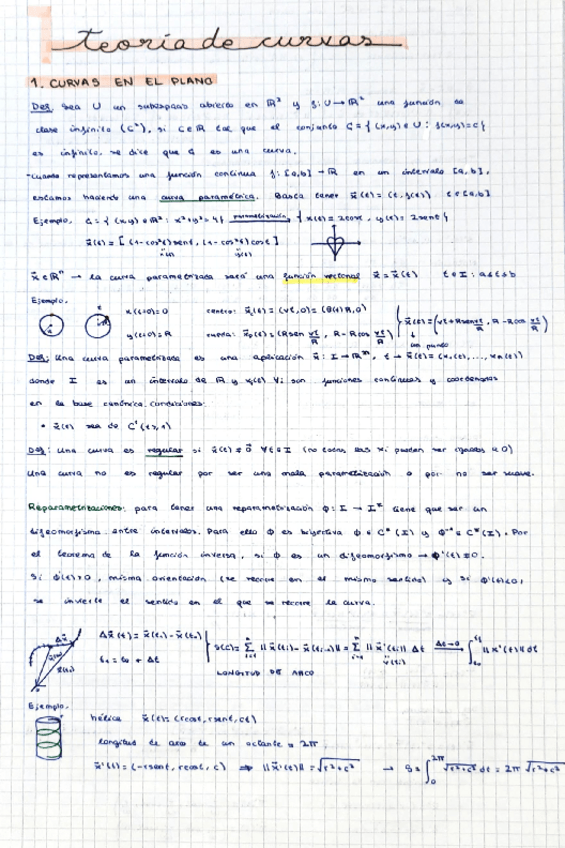 teoría de curvas
1. CURVAS EN EL PLANO
Def. Sea U un subespacio abierto en ℝ² y f: U → ℝ² una función de
clase infinito (C^∞), si C ∈ ℝ tal que el conjunto G = { (x,y) ∈ U : f(x,y) = c }
es infinito, se dice que G es una curva.
- Cuando representamos una función continua f: [a,b] → ℝ en un intervalo [a,b],
estamos haciendo una curva paramétrica. Basta tener x⃗(t) = (t, f(t)) t ∈ [a,b]
Ejemplo. C = { (x,y) ∈ ℝ² : x² + y² = 4 } parametrización { x(t) = 2cost, y(t) = 2sent }
x⃗(t) = [ (1-cos²t) sent, (1-cos³t) cost ]
x(t) y(t)
x⃗ ∈ ℝⁿ → la curva parametrizada será una función vectorial x⃗ = x⃗(t) t ∈ I : a ≤ t ≤ b
Ejemplo.
x(t=0) = 0 centro: x⃗(t) = (vt, 0) = (θ(t) R, 0)
y(t=0) = R cuerda: (R sen vt/R, R - R cos vt/R) } x⃗(t) = (vt + R sen vt/R, R - R cos vt/R)
un punto
Def. Una curva parametrizada es una aplicación x⃗: I → ℝⁿ, t → x⃗(t) = (x₁(t), ..., xₙ(t))
donde I es un intervalo de ℝ y xᵢ(t) ∀i son funciones continuas y coordenadas
en la base canónica. Condiciones:
• x⃗(t) sea de
Def. Una curva es regular si x⃗(t) ≠ 0⃗ ∀t ∈ I (no todas las xᵢ pueden ser iguales a 0)
Una curva no es regular por ser una mala parametrización o por no ser suave.
Reparametrizaciones: para tener una reparametrización φ: I → I* tiene que ser un
difeomorfismo entre intervalos. Para ello φ es biyectiva φ ∈ C^∞(I) y φ⁻¹ ∈ C^∞(I). Por
el teorema de la función inversa, si φ es un difeomorfismo → φ'(t) ≠ 0.
Si φ'(t) > 0, misma orientación (se recorre en el mismo sentido) y si φ'(t) < 0,
se invierte el sentido en el que se recorre la curva.
Δx⃗(t) = x⃗(t₁) - x⃗(t₀)
t₁ = t₀ + Δt
s(t) = Σ ||x⃗(tᵢ) - x⃗(tᵢ₋₁)|| = Σ ||x⃗'(tᵢ)|| Δt Δt→0 ∫ ||x'(t)|| dt
LONGITUD DE ARCO
Ejemplo.
hélice x⃗(t) = (rcost, rsent, ct)
longitud de arco de un octante = 2π.
x⃗'(t) = (-rsent, rcost, c) ⇒ ||x⃗'(t)|| = √(r² + c²) → S = ∫₀^2π √(r² + c²) dt = 2π √(r² + c²)